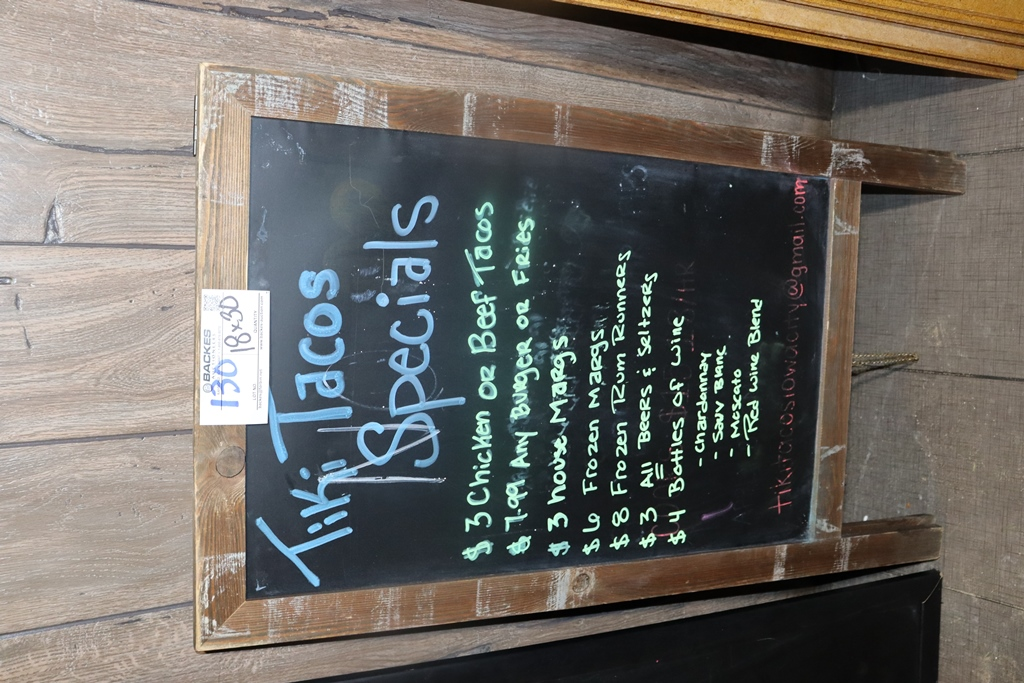 BACKES
130 18x30
LOT NO. QUANTITY
Tiki Tacos
Specials
$3 Chicken or Beef Tacos
$7.99 Any Burger or Fries
$3 house Margs
$6 Frozen Margs
$8 Frozen Rum Runners
$3 All Beers & Seltzers
$4 Bottles of wine
- Chardonnay
- Sauv Blanc
- Moscato
- Red Wine Blend
tikitacosiowacity@gmail.com